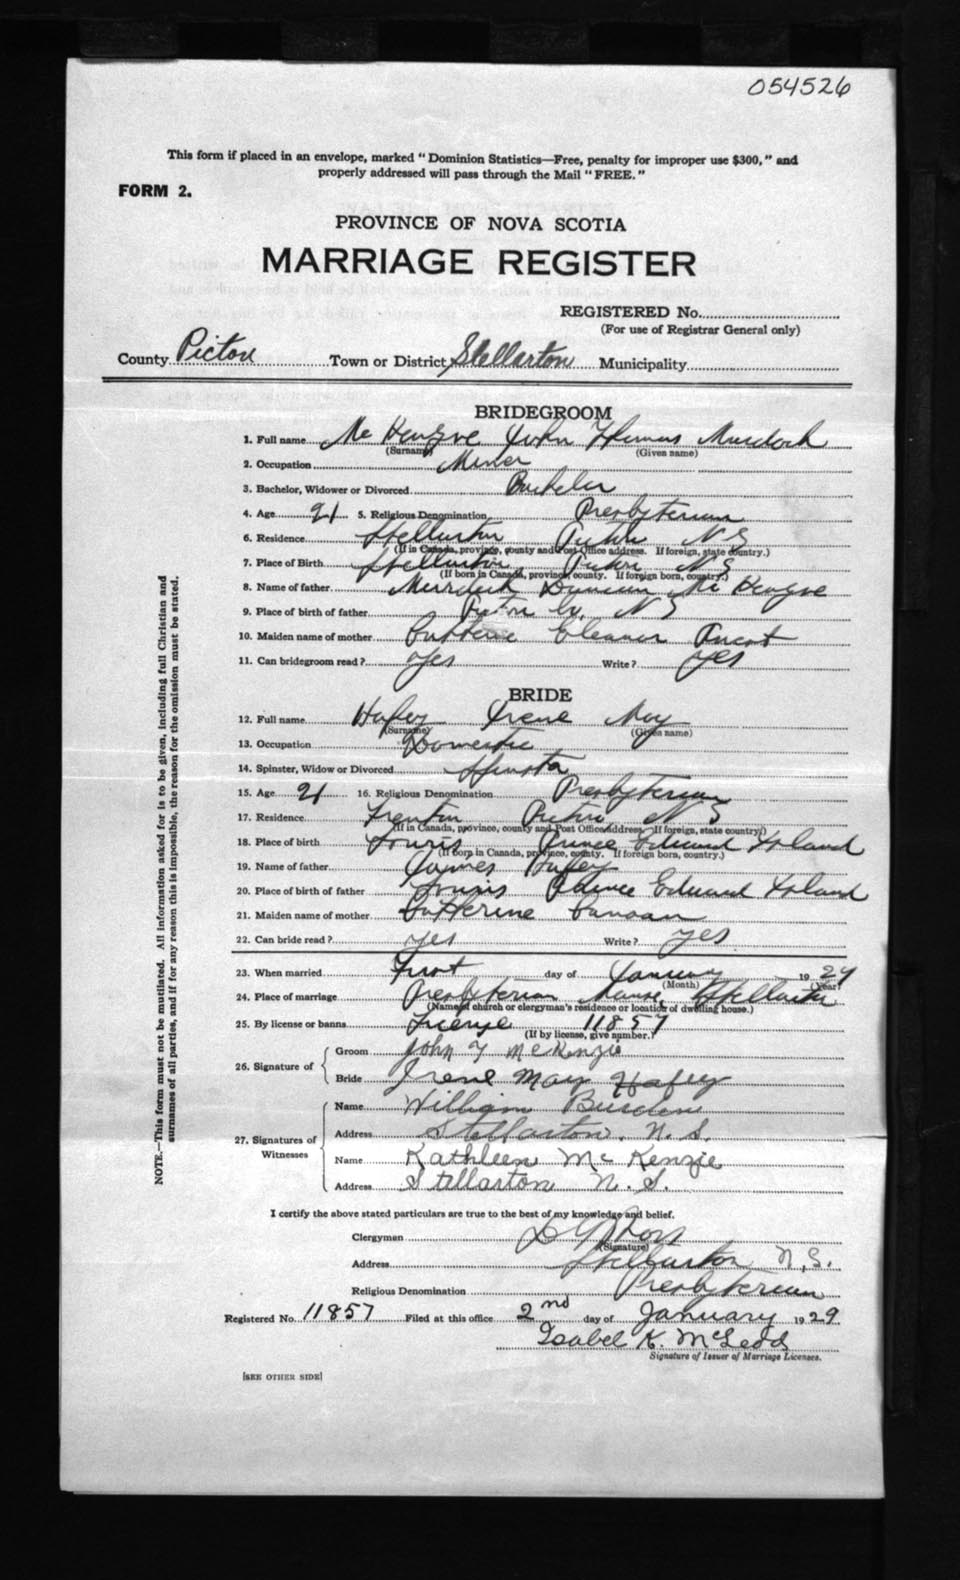 054526
This form if placed in an envelope, marked "Dominion Statistics—Free, penalty for improper use $300," and
properly addressed will pass through the Mail "FREE."
FORM 2.
PROVINCE OF NOVA SCOTIA
MARRIAGE REGISTER
REGISTERED No.
(For use of Registrar General only)
County Pictou Town or District Stellarton Municipality
BRIDEGROOM
1. Full name Mc Kenzie John Thomas Murdoch
(Surname) (Given name)
2. Occupation Miner
3. Bachelor, Widower or Divorced Bachelor
4. Age 21 5. Religious Denomination Presbyterian
6. Residence Stellarton Pictou N S
(If in Canada, province, county and Post Office address. If foreign, state country.)
7. Place of Birth Stellarton Pictou N S
(If born in Canada, province, county. If foreign born, country.)
8. Name of father Murdoch Duncan Mc Kenzie
9. Place of birth of father Pictou Co. N S
10. Maiden name of mother Catherine Eleanor
11. Can bridegroom read? Yes Write? Yes
BRIDE
12. Full name Hafey Irene May
(Surname) (Given name)
13. Occupation Domestic
14. Spinster, Widow or Divorced Spinster
15. Age 21 16. Religious Denomination Presbyterian
17. Residence Trenton Pictou N S
(If in Canada, province, county and Post Office Address. If foreign, state country.)
18. Place of birth Souris Prince Edward Island
(If born in Canada, province, county. If foreign born, country.)
19. Name of father James Hafey
20. Place of birth of father Souris Prince Edward Island
21. Maiden name of mother Catherine
22. Can bride read? Yes Write? Yes
23. When married First day of January 1929
(Month) (Year)
24. Place of marriage Presbyterian Manse, Stellarton
(Name of church or clergyman's residence or location of dwelling house.)
25. By license or banns License 11857
(If by license, give number.)
26. Signature of
Groom John T McKenzie
Bride Irene May Hafey
27. Signatures of Witnesses
Name William Burden
Address Stellarton. N. S.
Name Kathleen Mc Kenzie
Address Stellarton N. S.
I certify the above stated particulars are true to the best of my knowledge and belief.
Clergyman
(Signature)
Address Stellarton N.S.
Religious Denomination Presbyterian
Registered No. 11857 Filed at this office 2nd day of January 1929
Isabel K. McLeod
Signature of Issuer of Marriage Licenses.
[SEE OTHER SIDE]
NOTE.—This form must not be mutilated. All information asked for is to be given, including full Christian and
surnames of all parties, and if for any reason this is impossible, the reason for the omission must be stated.